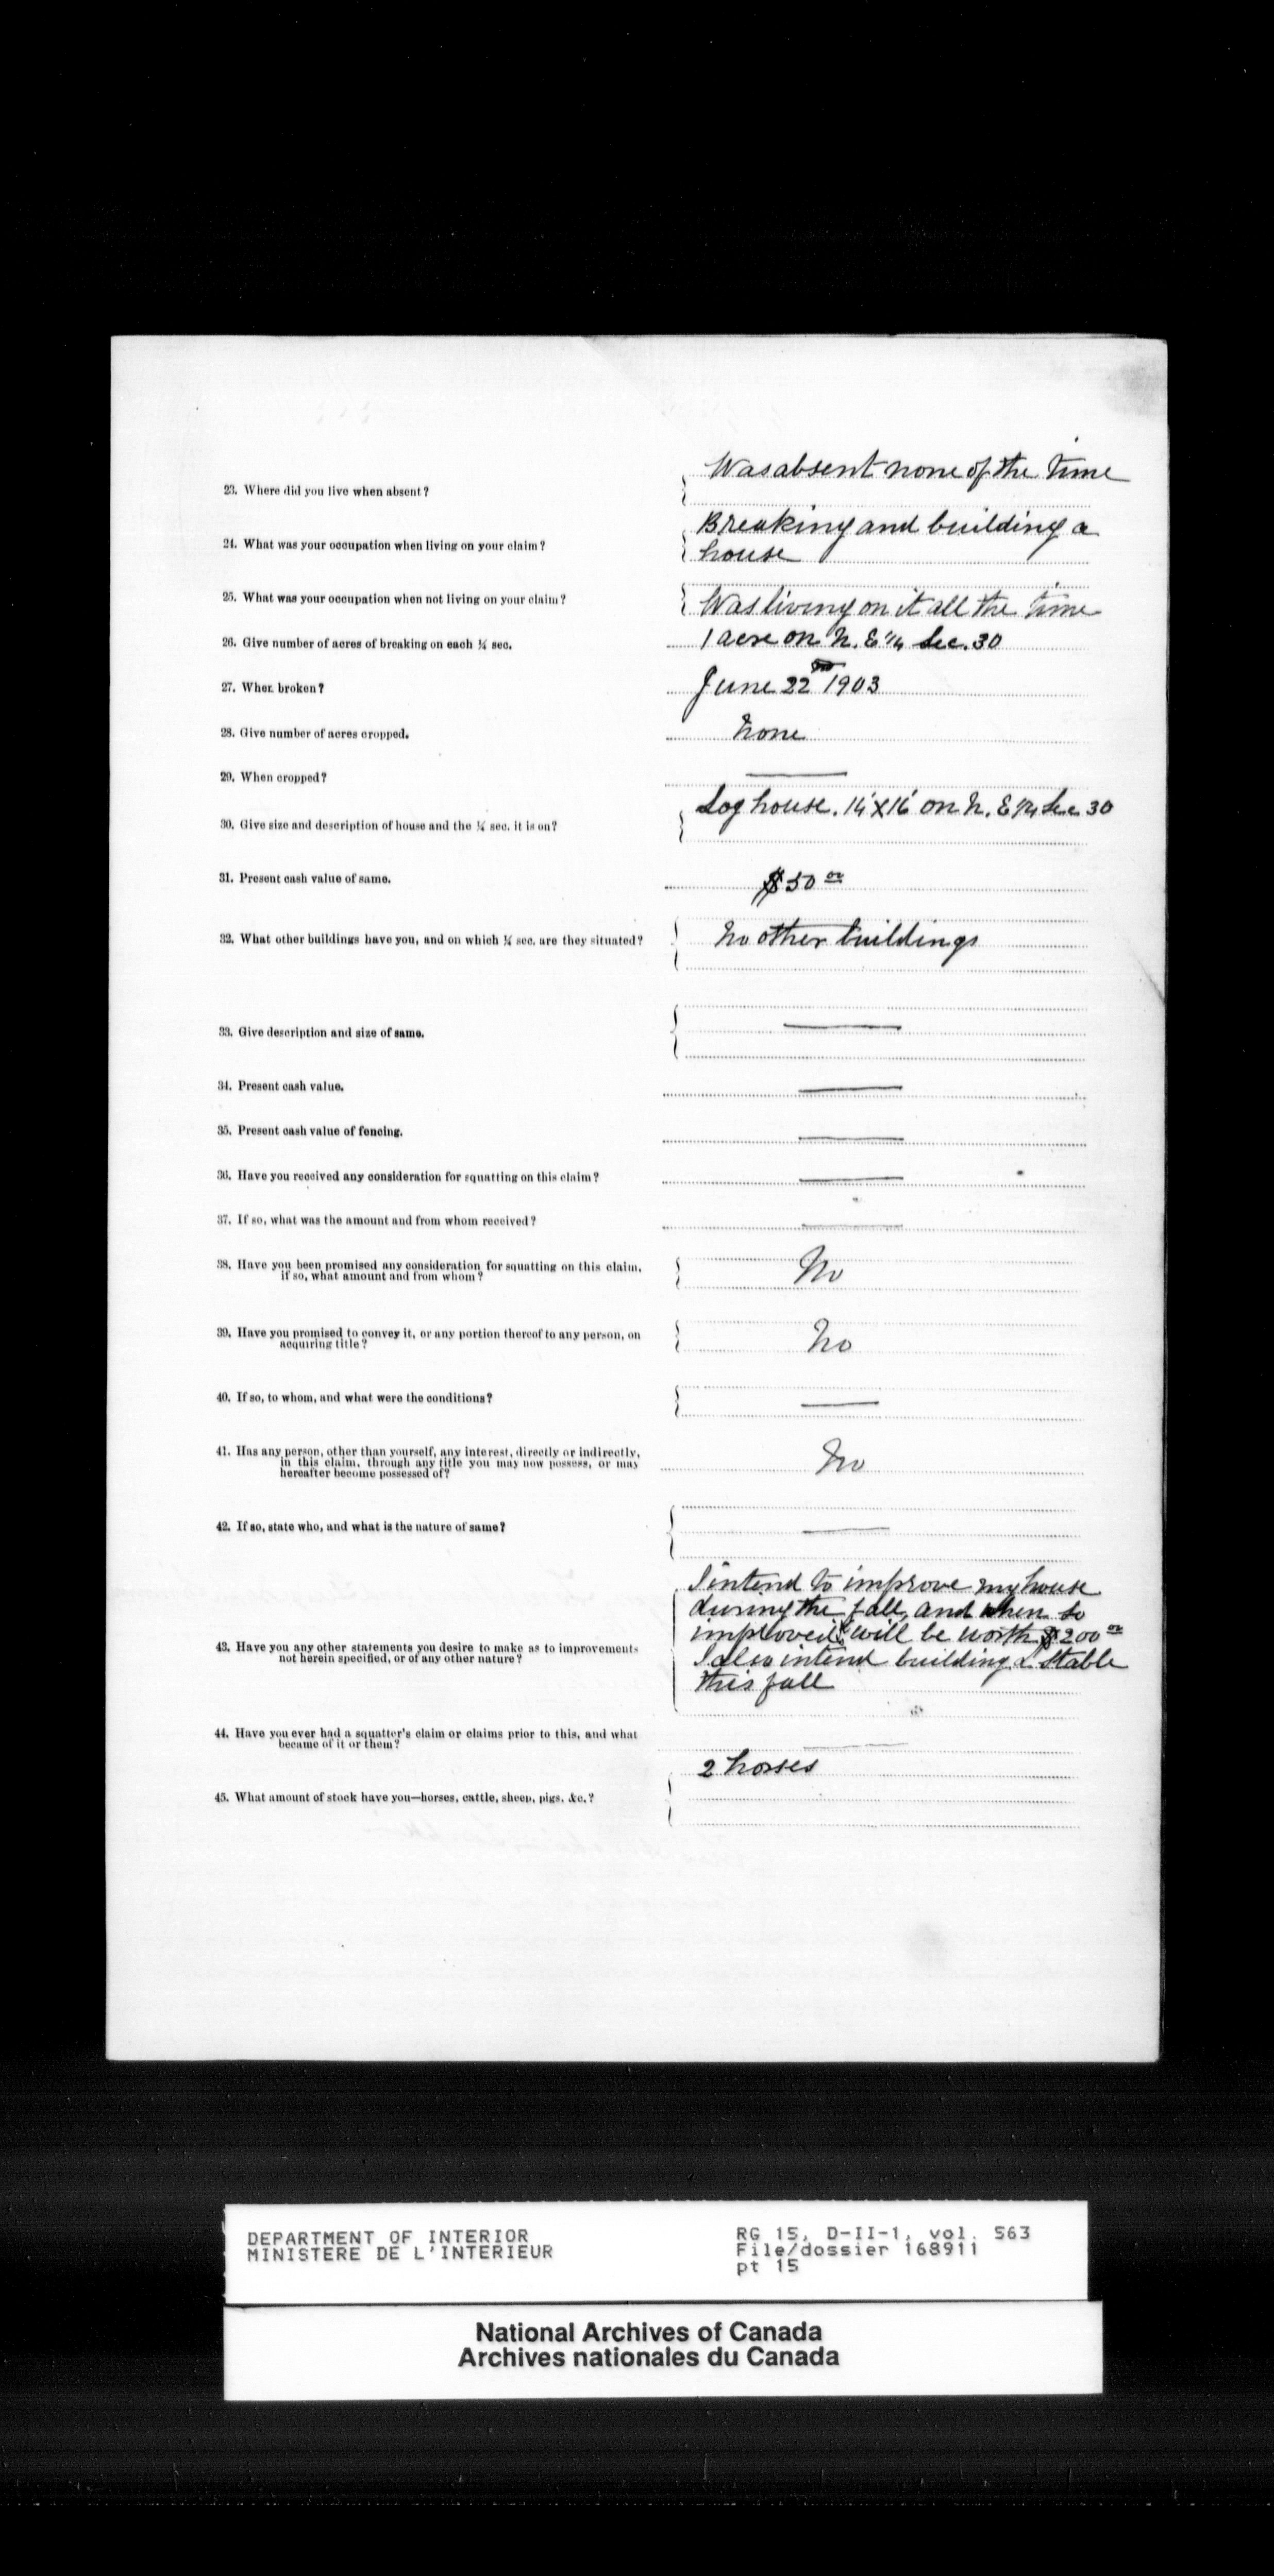 Was absent none of the time
23. Where did you live when absent?
Breaking and building a
24. What was your occupation when living on your claim?
house
25. What was your occupation when not living on your claim?
Was living on it all the time
26. Give number of acres of breaking on each ¼ sec.
1 acre on N. E ¼ Sec. 30
27. When broken?
June 22nd 1903
28. Give number of acres cropped.
None
29. When cropped?
Log house. 14'X16' on N. E ¼ Sec 30
30. Give size and description of house and the ¼ sec. it is on?
31. Present cash value of same.
$50 00
32. What other buildings have you, and on which ¼ sec. are they situated?
No other buildings
33. Give description and size of same.
34. Present cash value.
35. Present cash value of fencing.
36. Have you received any consideration for squatting on this claim?
37. If so, what was the amount and from whom received?
38. Have you been promised any consideration for squatting on this claim,
if so, what amount and from whom?
No
39. Have you promised to convey it, or any portion thereof to any person, on
acquiring title?
No
40. If so, to whom, and what were the conditions?
41. Has any person, other than yourself, any interest, directly or indirectly,
in this claim, through any title you may now possess, or may
hereafter become possessed of?
No
42. If so, state who, and what is the nature of same?
I intend to improve my house
during the fall, and when so
improved will be worth $200 00
43. Have you any other statements you desire to make as to improvements
not herein specified, or of any other nature?
I also intend building a Stable
this fall
44. Have you ever had a squatter's claim or claims prior to this, and what
became of it or them?
2 horses
45. What amount of stock have you—horses, cattle, sheep, pigs, &c.?
DEPARTMENT OF INTERIOR
MINISTERE DE L'INTERIEUR
RG 15, D-II-1, vol. 563
File/dossier 168911
pt 15
National Archives of Canada
Archives nationales du Canada